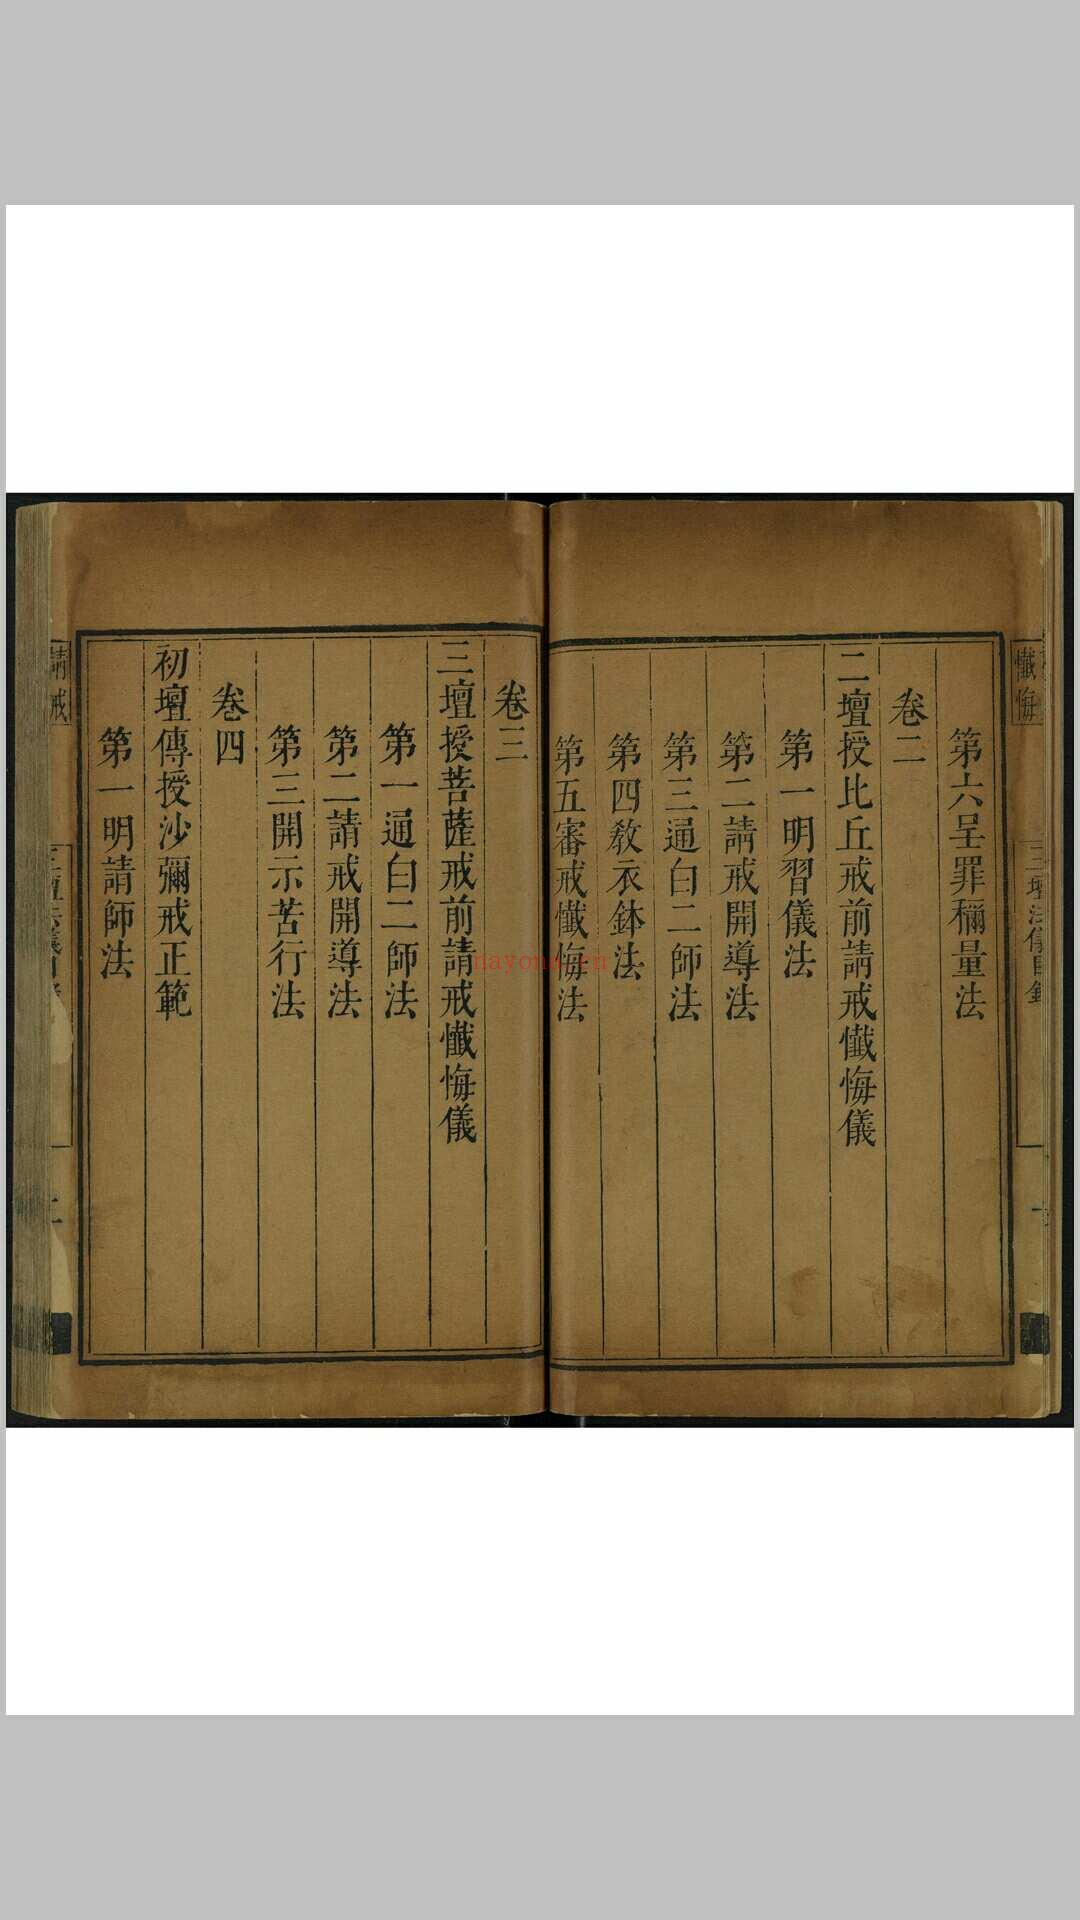 懺悔
三壇法儀目錄
第六呈罪稱量法
卷二
二壇授比丘戒前請戒懺悔儀
第一明習儀法
第二請戒開導法
第三通白二師法
第四教衣鉢法
第五審戒懺悔法
卷三
三壇授菩薩戒前請戒懺悔儀
第一通白二師法
第二請戒開導法
第三開示苦行法
卷四
初壇傳授沙彌戒正範
第一明請師法
請戒
二
nayona.cn